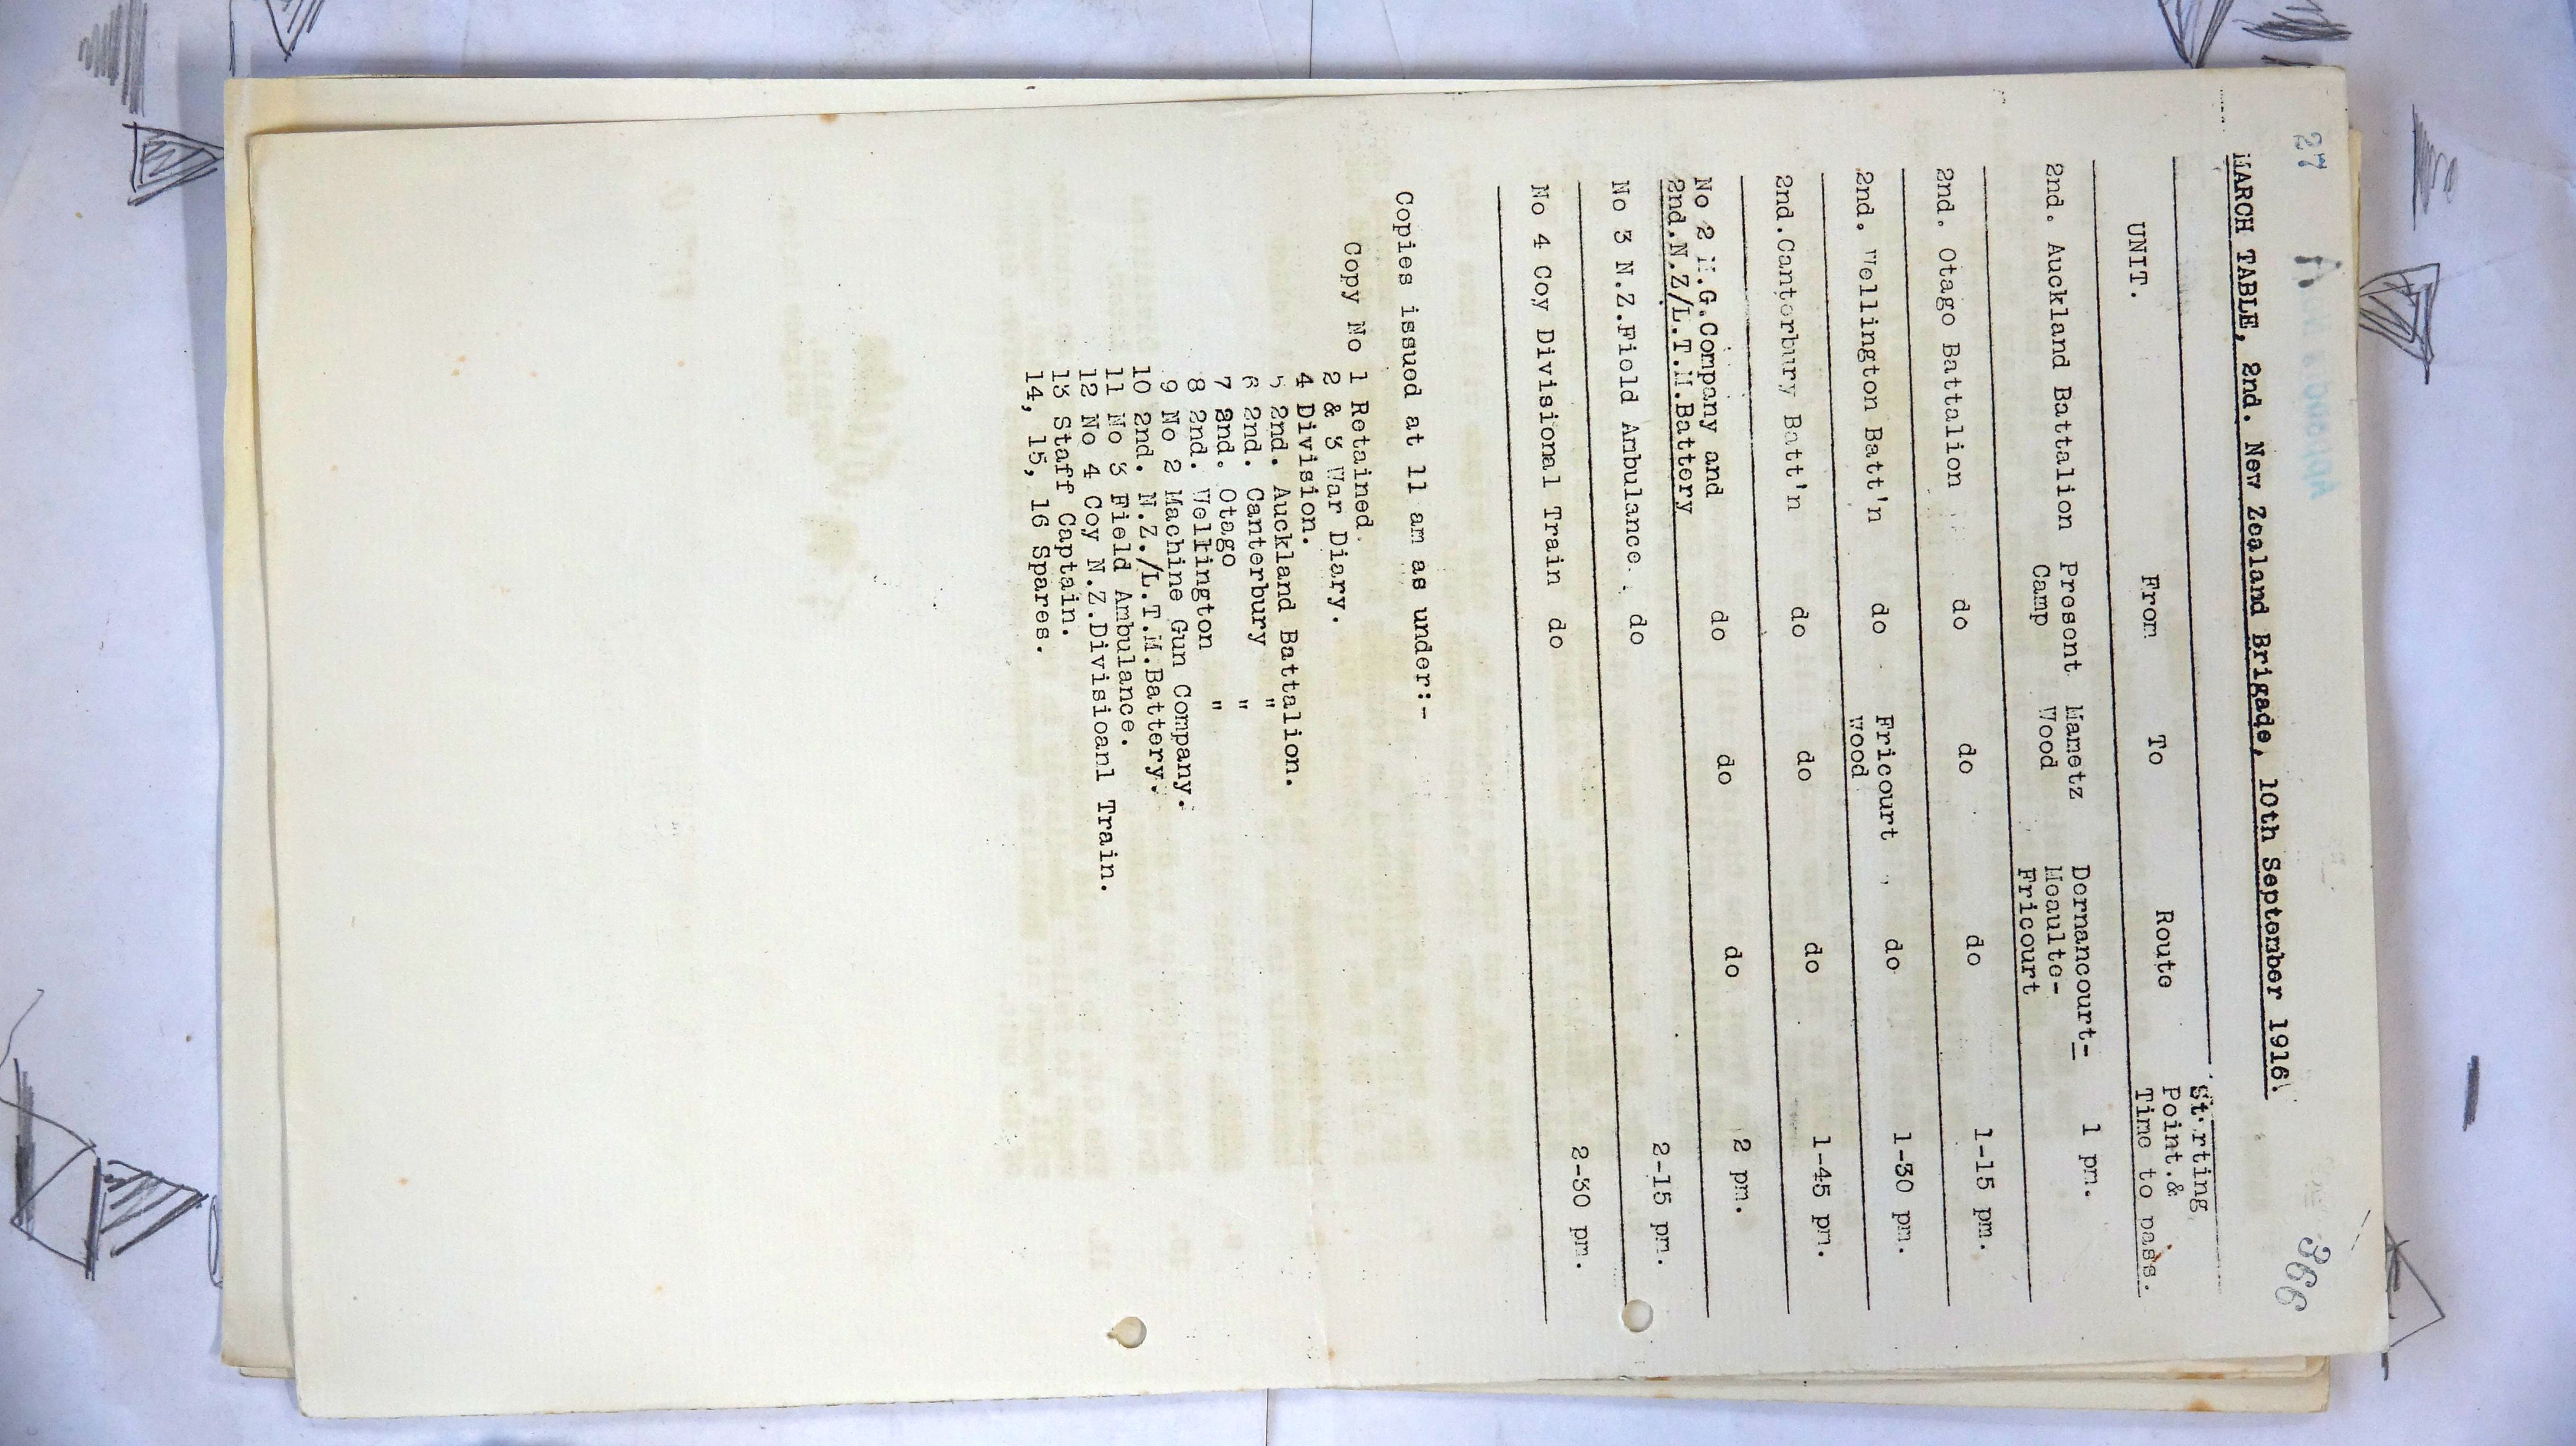 27
366
MARCH TABLE, 2nd. New Zealand Brigade, 10th September 1916.
UNIT. From To Route St.rting Point.& Time to pass.
2nd. Auckland Battalion Present Camp Mametz Wood Dernancourt- Meaulte- Fricourt 1 pm.
2nd. Otago Battalion do do do 1-15 pm.
2nd. Wellington Batt'n do Fricourt wood do 1-30 pm.
2nd.Canterbury Batt'n do do do 1-45 pm.
No 2 M.G.Company and 2nd.N.Z/L.T.M.Battery do do do 2 pm.
No 3 N.Z.Field Ambulance. do 2-15 pm.
No 4 Coy Divisional Train do 2-30 pm.
Copies issued at 11 am as under:-
Copy No 1 Retained.
2 & 3 War Diary.
4 Division.
5 2nd. Auckland Battalion.
6 2nd. Canterbury "
7 2nd. Otago "
8 2nd. Wellington "
9 No 2 Machine Gun Company.
10 2nd. N.Z./L.T.M.Battery.
11 No 3 Field Ambulance.
12 No 4 Coy N.Z.Divisioanl Train.
13 Staff Captain.
14, 15, 16 Spares.